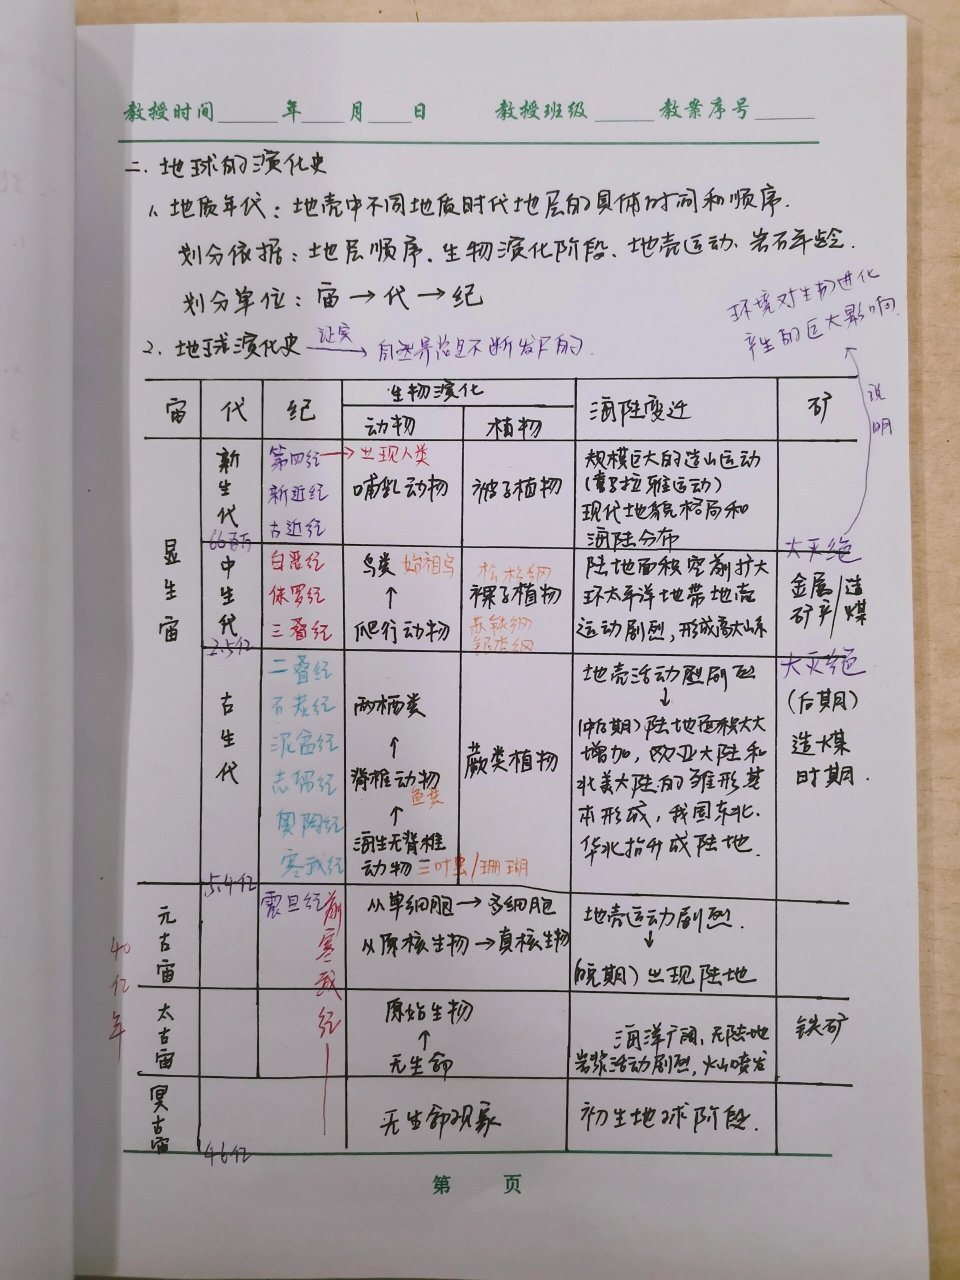 教授时间 年 月 日 教授班级 教案序号
二、地球的演化史
1、地质年代：地壳中不同地质时代地层的具体时间和顺序.
划分依据：地层顺序、生物演化阶段、地壳运动、岩石年龄.
划分单位：宙→代→纪
环境对生物进化
产生的巨大影响.
2、地球演化史 证实→ 自然界总是不断发展的.
说明
宙 代 纪 生物演化 海陆变迁 矿
动物 植物
显生宙
新生代
第四纪→出现人类
新近纪 哺乳动物 被子植物
古近纪
规模巨大的造山运动
(喜马拉雅运动)
现代地貌格局和
海陆分布
66百万
大灭绝
中生代
白垩纪 鸟类 始祖鸟 松柏纲
侏罗纪 ↑ 裸子植物
三叠纪 爬行动物 苏铁纲
银杏纲
陆地面积空前扩大
环太平洋地带地壳
运动剧烈，形成高大山系
金属矿产/造煤
2.5亿
大灭绝
古生代
二叠纪
石炭纪 两栖类
泥盆纪 ↑
志留纪 脊椎动物 蕨类植物
鱼类
奥陶纪 ↑
寒武纪 海生无脊椎
动物 三叶虫/珊瑚
地壳活动剧烈
↓
(中后期)陆地面积大大
增加，欧亚大陆和
北美大陆的雏形基
本形成，我国东北、
华北抬升成陆地.
(后期)
造煤
时期.
5.4亿
元古宙 震旦纪 从单细胞→多细胞
从原核生物→真核生物
地壳运动剧烈.
↓
(晚期)出现陆地
前寒武纪
40亿年
太古宙 原始生物
↑
无生命
海洋广阔，无陆地
岩浆活动剧烈，火山喷发
铁矿
冥古宙 无生命现象 初生地球阶段.
46亿
第 页